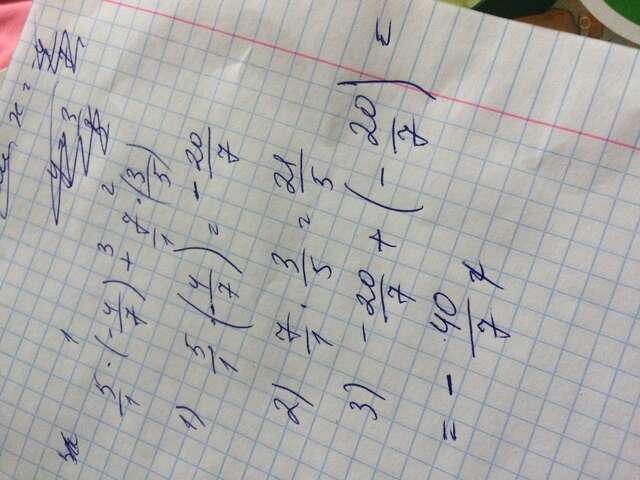 x = -4/7
1 3 2
5/1 · (-4/7) + 7/1 · (3/5)
1) 5/1 · (-4/7) = -20/7
2) 7/1 · 3/5 = 21/5
3) -20/7 + (-20/7) =
= -40/7